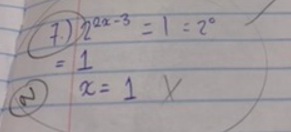 7.) 2^{2x-3} = 1 = 2^0
= 1
② x = 1 X